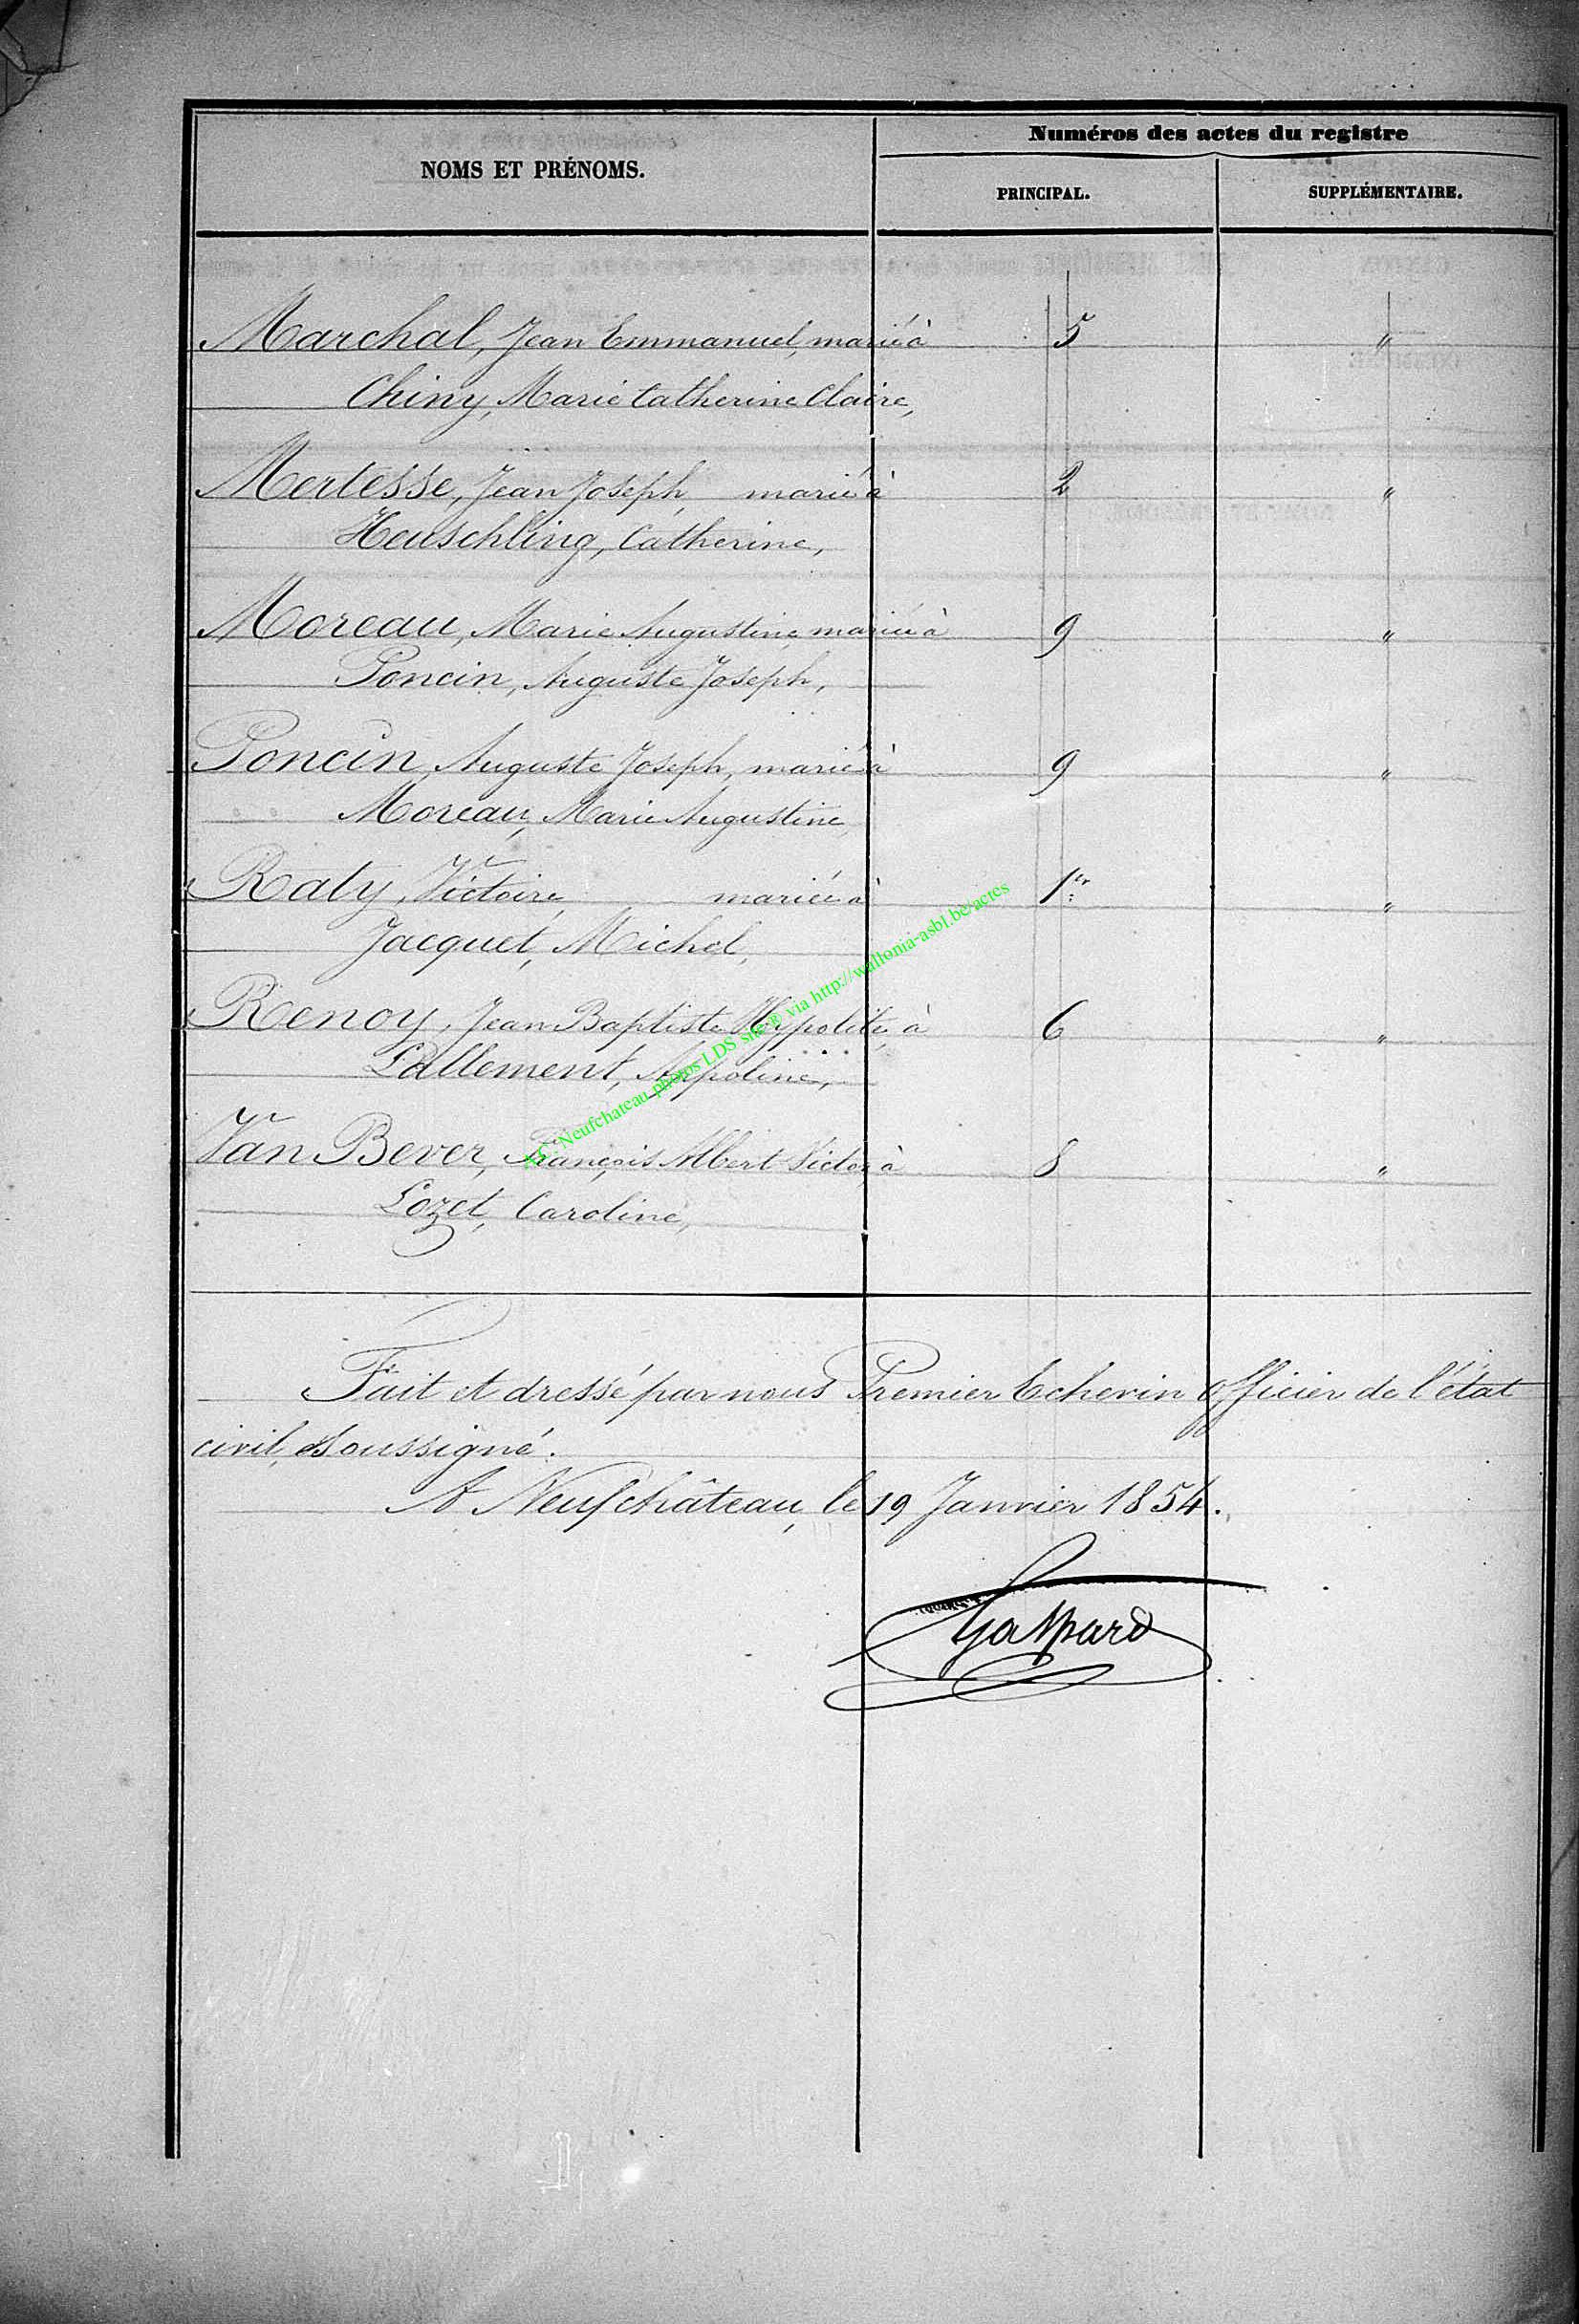 Numéros des actes du registre
NOMS ET PRÉNOMS.
PRINCIPAL. SUPPLÉMENTAIRE.
Marchal, Jean Emmanuel, marié à 5 "
Chiny, Marie Catherine Claire,
Mertesse, Jean Joseph, marié à 2 "
Heuschling, Catherine,
Moreau, Marie Augustine, mariée à 9 "
Poncin, Auguste Joseph,
Poncin, Auguste Joseph, marié à 9 "
Moreau, Marie Augustine,
Raty, Victoire, mariée à 1er "
Jacquet, Michel,
Renoy, Jean Baptiste Hypolite, à 6 "
Lallement, Appoline,
Van Bever, François Albert Victor, à 8 "
Lozet, Caroline,
Neufchateau photos LDS site® via http://wallonia-asbl.be/actes
Fait et dressé par nous Premier Echevin officier de l'état
civil, soussigné.
A Neufchâteau, le 19 Janvier 1854.
Gaspard